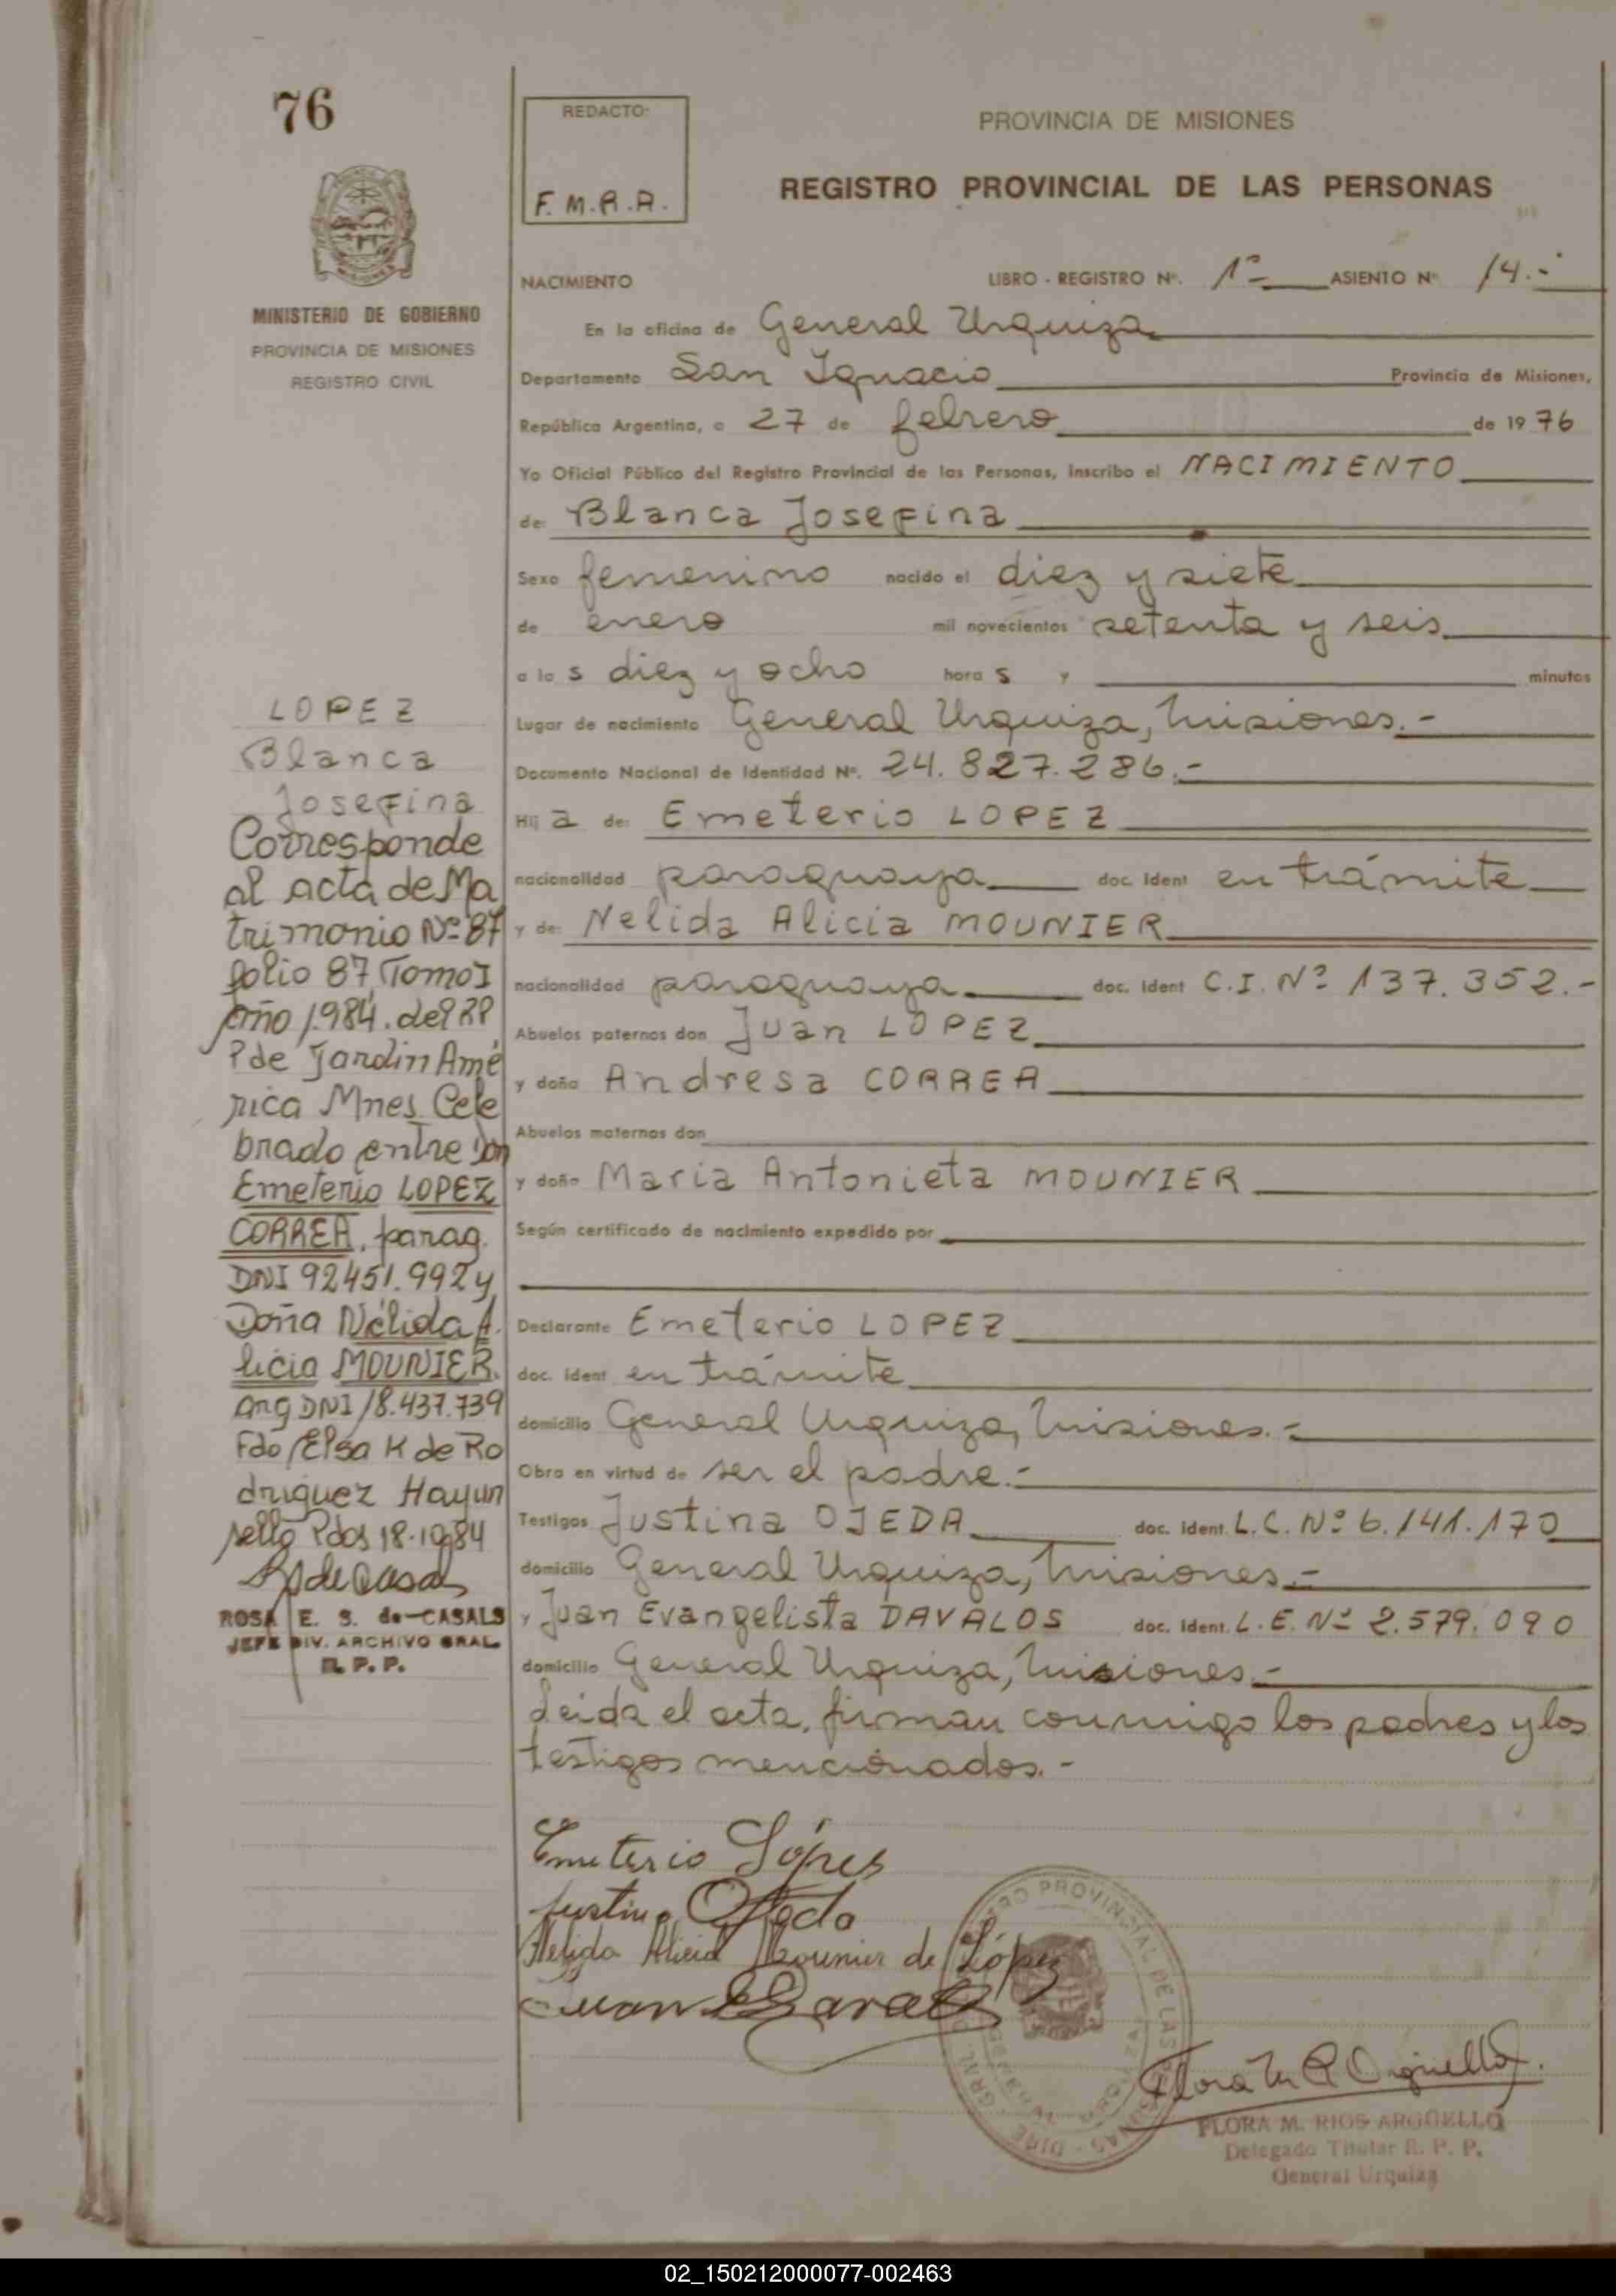 76
MINISTERIO DE GOBIERNO
PROVINCIA DE MISIONES
REGISTRO CIVIL
REDACTO:
F.M.R.A.
PROVINCIA DE MISIONES
REGISTRO PROVINCIAL DE LAS PERSONAS
NACIMIENTO LIBRO - REGISTRO Nº. 1º ASIENTO Nº 14.-
En la oficina de General Urquiza
Departamento San Ignacio Provincia de Misiones,
República Argentina, a 27 de febrero de 1976
Yo Oficial Público del Registro Provincial de las Personas, inscribo el NACIMIENTO
de: Blanca Josefina
Sexo femenino nacido el diez y siete
de enero mil novecientos setenta y seis
a las diez y ocho horas y minutos
Lugar de nacimiento General Urquiza, Misiones.-
Documento Nacional de Identidad Nº. 24.827.286.-
Hija de: Emeterio LOPEZ
nacionalidad paraguaya doc. Ident en trámite
y de: Nelida Alicia MOUNIER
nacionalidad paraguaya doc. Ident C.I. Nº 137.352.-
Abuelos paternos don Juan LOPEZ
y doña Andresa CORREA
Abuelos maternos don
y doña Maria Antonieta MOUNIER
Según certificado de nacimiento expedido por
Declarante Emeterio LOPEZ
doc. Ident en trámite
domicilio General Urquiza, Misiones.-
Obra en virtud de ser el padre.-
Testigos Justina OJEDA doc. Ident. L.C. Nº 6.141.170
domicilio General Urquiza, Misiones.-
y Juan Evangelista DAVALOS doc. Ident. L.E. Nº 2.579.090
domicilio General Urquiza, Misiones.-
Leida el acta, firman conmigo los padres y los
testigos mencionados.-
LOPEZ
Blanca
Josefina
Corresponde
al acta de Ma
trimonio Nº 87
folio 87 Tomo I
año 1.984. del RP
P de Jardin Amé
rica Mnes. Cele
brado entre Don
Emeterio LOPEZ
CORREA, parag.
DNI 92451.992 y
Doña Nélida A.
licia MOUNIER.
arg DNI 18.437.739
Fdo/Elsa K de Ro
driguez Hay un
sello Pdos 18-10-84
ROSA E. S. de CASALS
JEFE DIV. ARCHIVO GRAL.
R. P. P.
Emeterio Lópes
Justina Ojeda
Nelida Alicia Mounier de López
FLORA M. RIOS ARGÜELLO
Delegado Titular R. P. P.
General Urquiza
02_150212000077-002463